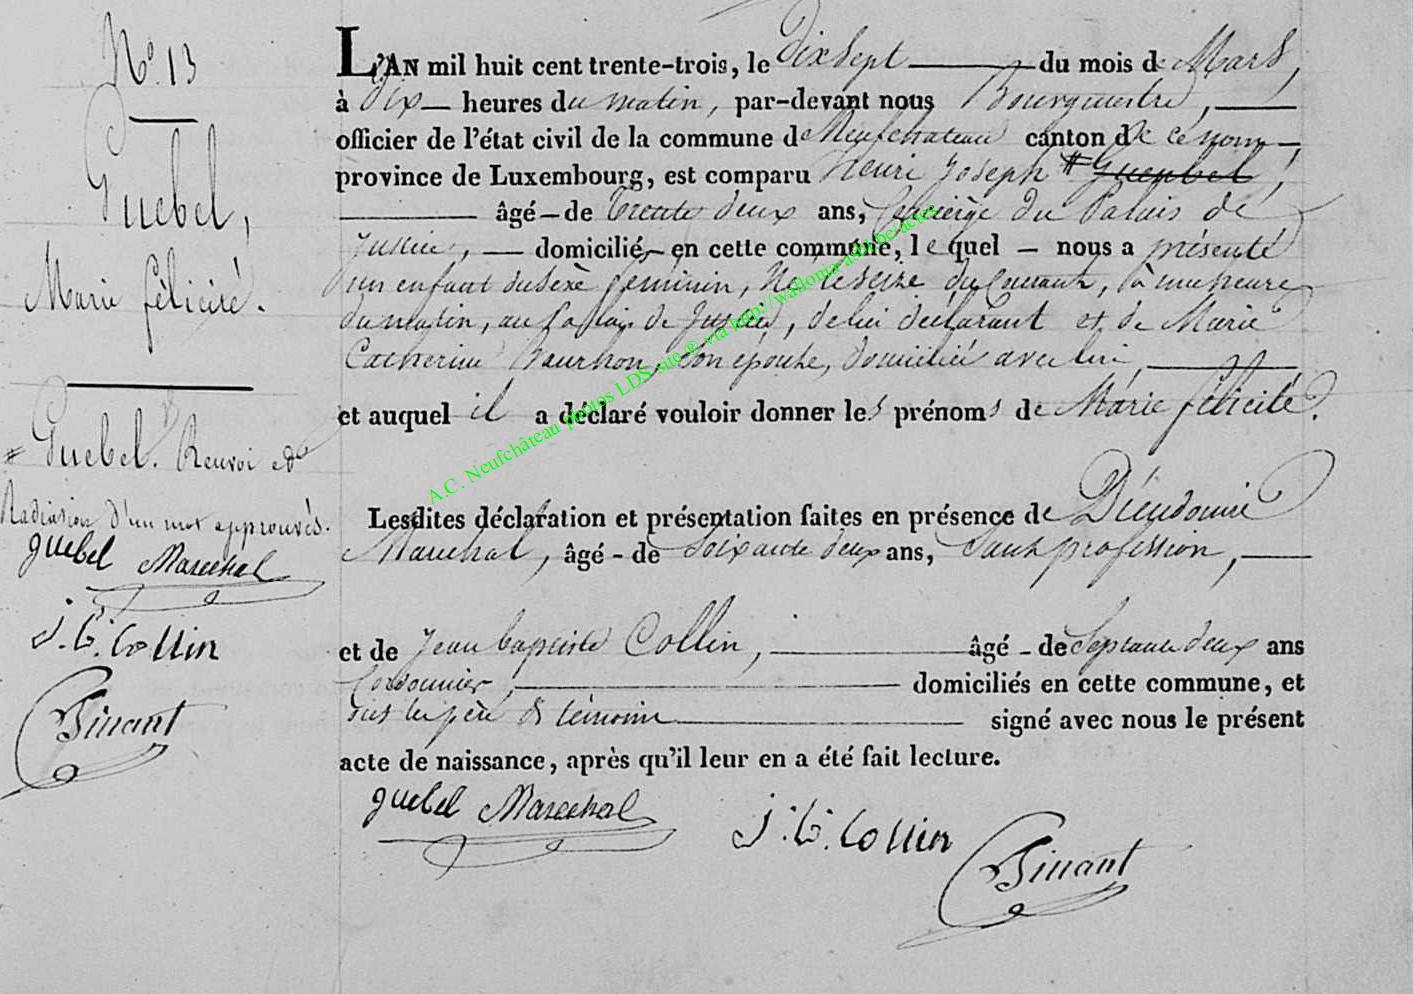 N° 13
Guebel,
Marie félicité.
# Guebel. Renvoi et
Radiation d'un mot approuvés.
guebel Marechal
J. B. Collin
Dinant
L'AN mil huit cent trente-trois, le Dix Sept du mois de Mars,
à Dix heures du matin, par-devant nous Bourgmestre,
officier de l'état civil de la commune de Neufchateau canton de ce nom,
province de Luxembourg, est comparu Henri Joseph # Guenbel,
âgé de Trente deux ans, Concierge du Palais de
Justice, domicilié en cette commune, lequel nous a présenté
un enfant du sexe féminin, Né le seize du Courant, à une heure
du matin, au Palais de Justice, de lui déclarant et de Marie
Catherine Bourhon, Son épouse, domiciliée avec lui,
et auquel il a déclaré vouloir donner les prénoms de Marie félicité.
Lesdites déclaration et présentation faites en présence de Dieudonné
Marechal, âgé de Soixante deux ans, Sans profession,
et de Jean baptiste Collin, âgé de Septante deux ans
Cordonnier, domiciliés en cette commune, et
ont les père & témoins signé avec nous le présent
acte de naissance, après qu'il leur en a été fait lecture.
guebel Marechal
J. B. Collin
Dinant
A.C. Neufchâteau photos LDS-site ® via http://wallonia-asbl.be/actes